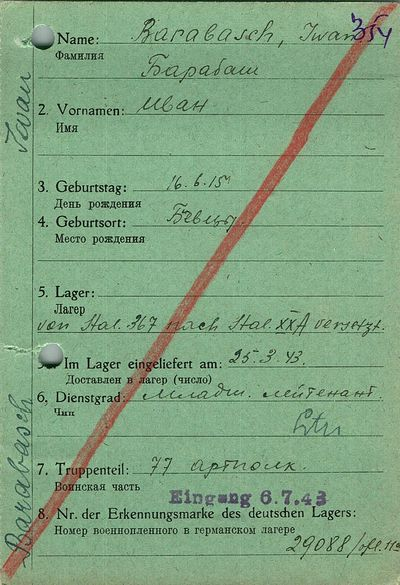 354
Name: Barabasch, Iwan
Фамилия
Барабаш
2. Vornamen: Иван
Имя
3. Geburtstag: 16.6.15
День рождения
4. Geburtsort:
Место рождения
5. Lager:
Лагерь
von Stal. 367 nach Stal. XXA versetzt.
Im Lager eingeliefert am: 25.3.43.
Доставлен в лагерь (число)
6. Dienstgrad: Младш. лейтенант.
Чин
Ltn
7. Truppenteil: 77 артполк.
Воинская часть
Eingang 6.7.43
8. Nr. der Erkennungsmarke des deutschen Lagers:
Номер военнопленного в германском лагере
29088/
Barabasch Iwan